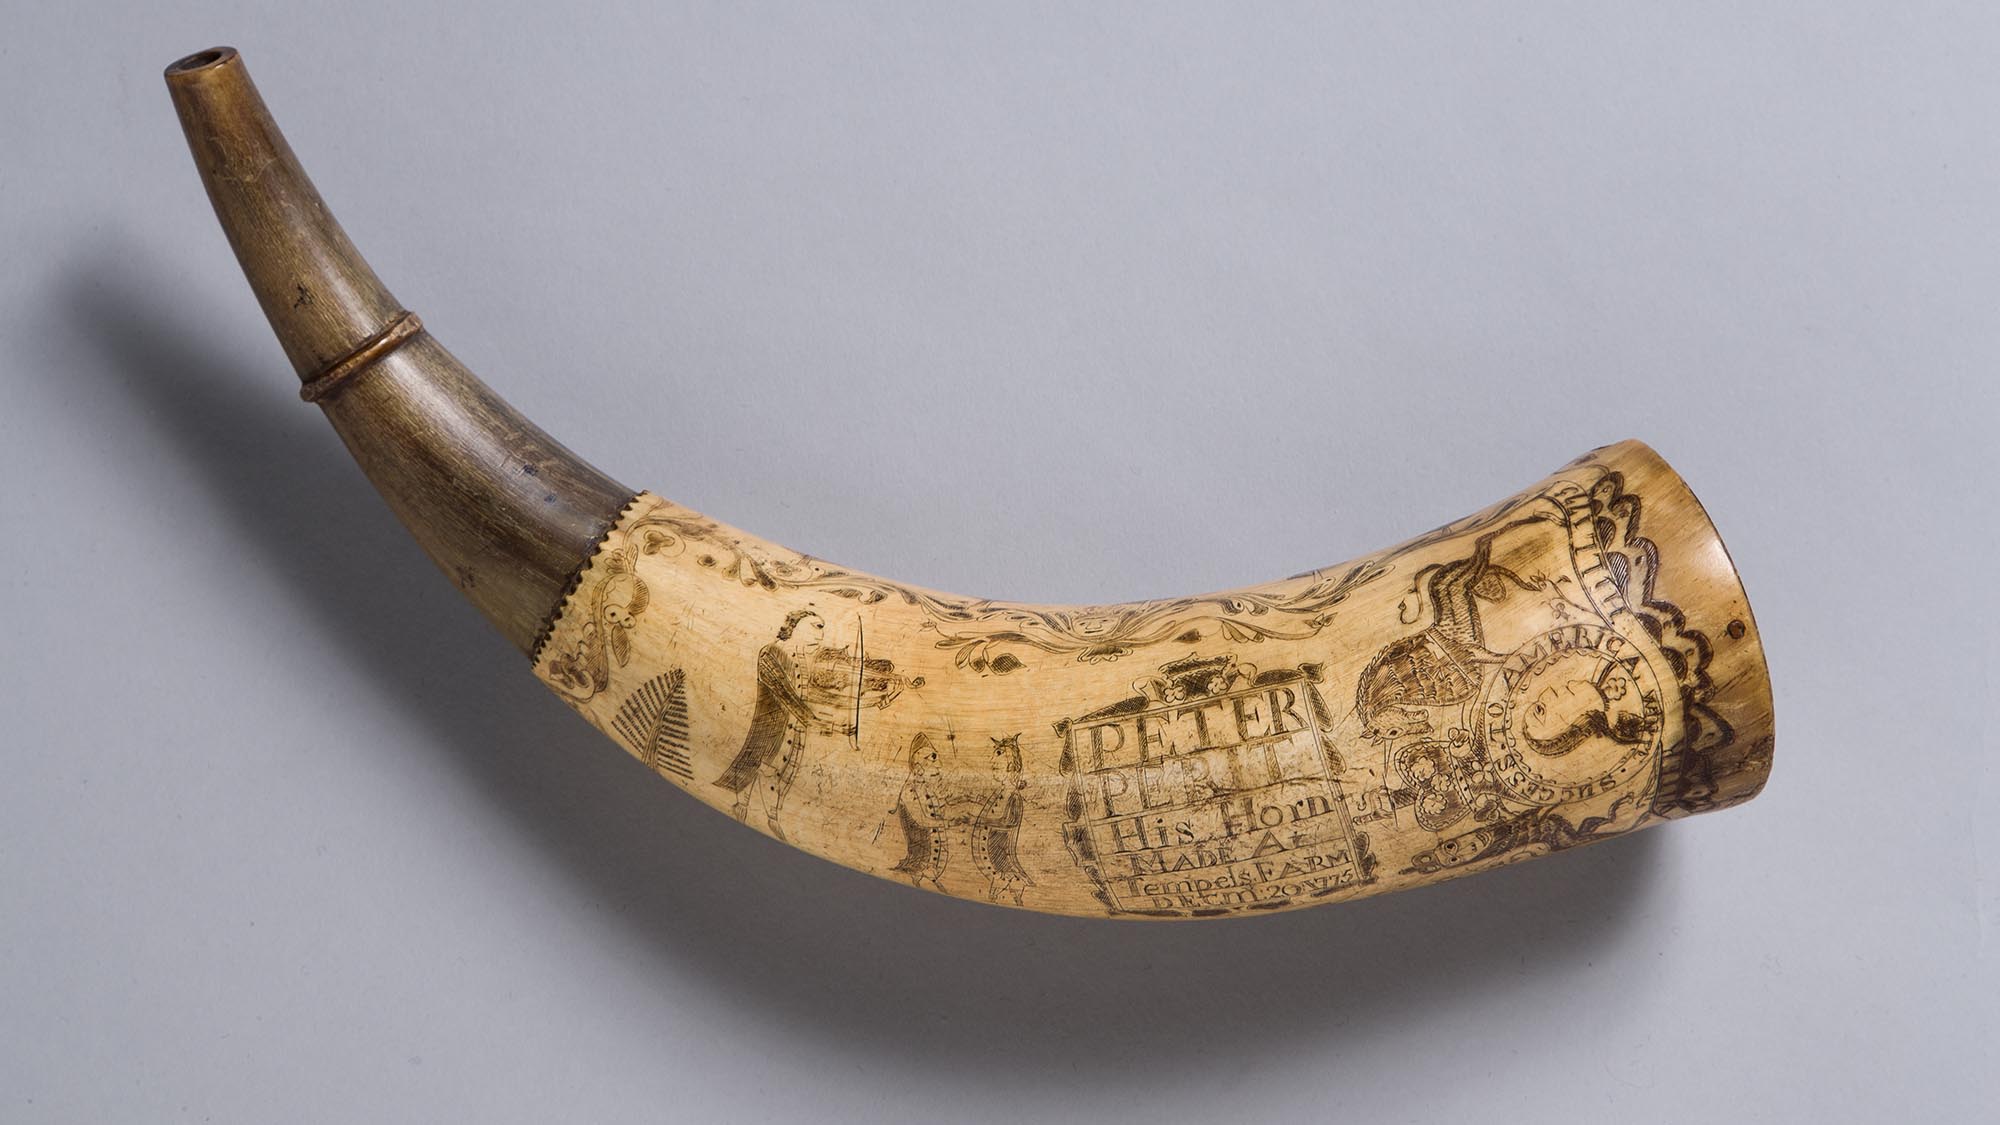 PETER
PERIT
His Horn
MADE At
Tempels FARM
DECM: 20 1775
SUCCESS · TO AMERICA